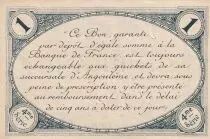 1
1
"Ce Bon, garanti
par dépôt d'égale somme à la
Banque de France, est toujours
échangeable aux guichets de sa
succursale d'Angoulême et devra, sous
peine de prescription, y être présenté
au remboursement dans le délai
de cinq ans à dater de ce jour"